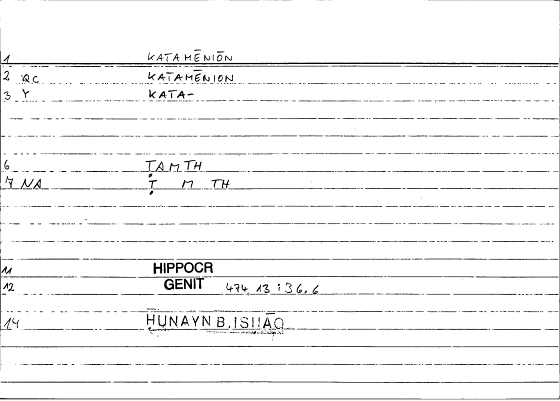 1 KATAMĒNIŌN
2 QC KATAMĒNION
3 Y KATA-
6 ṬAMTH
7 NA Ṭ M TH
11 HIPPOCR
12 GENIT 474,13 : 36.6
14 ḤUNAYN B. ISḤĀQ